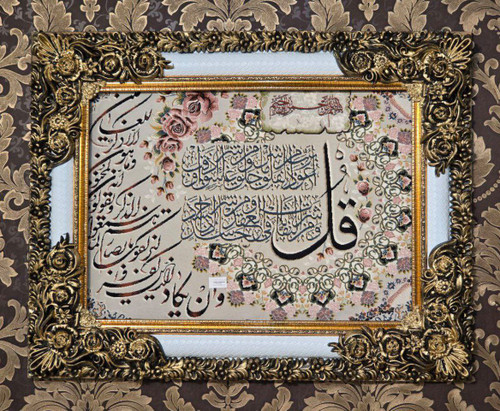 قل
اعوذ برب الفلق من شر ما خلق و من شر غاسق اذا وقب
و من شر النفاثات فى العقد و من شر حاسد اذا حسد
وان يكاد الذين كفروا
ليزلقونك بابصارهم
لما سمعوا الذكر
و يقولون انه لمجنون
و ما هو الا ذكر
للعالمين